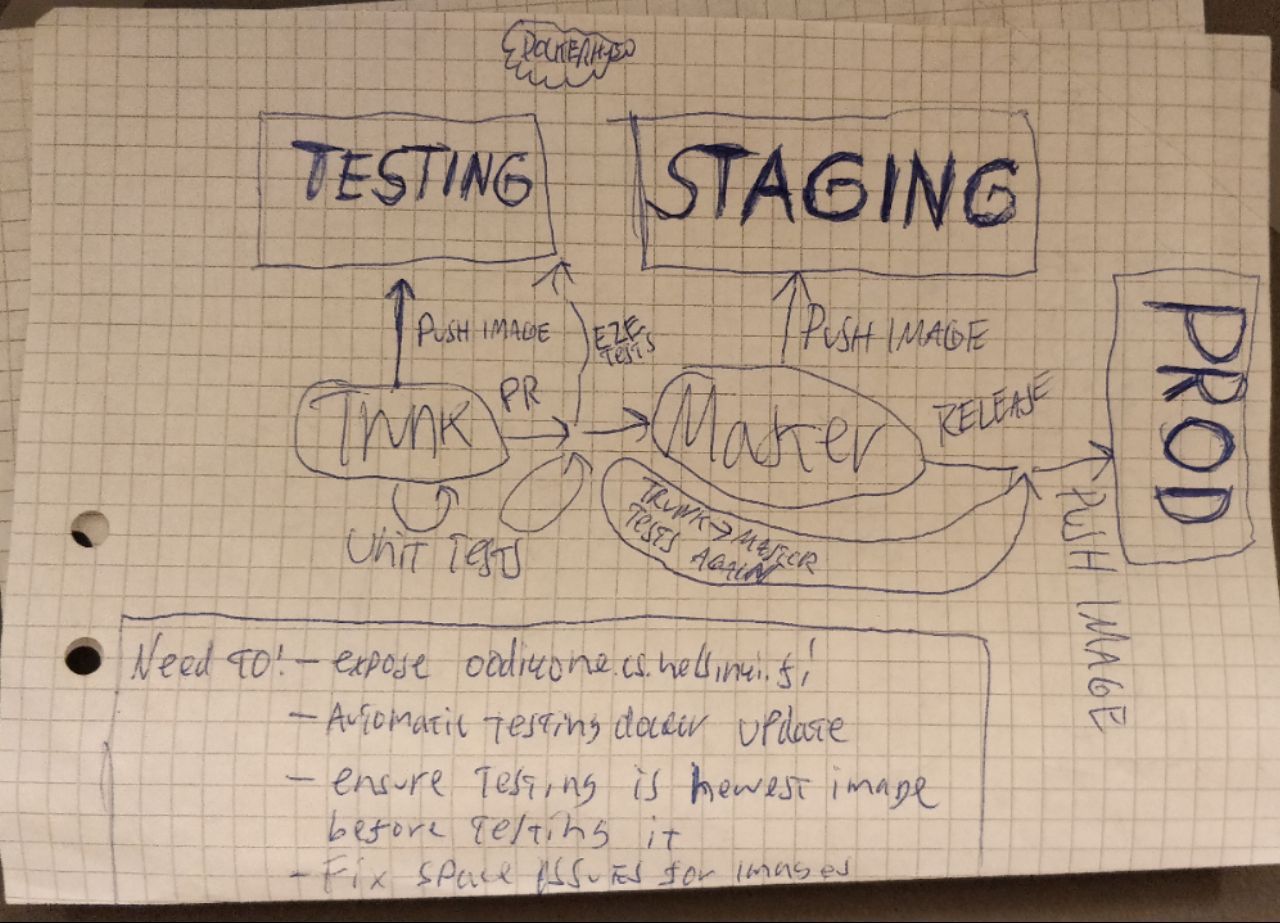 DOCKERHUB
TESTING
STAGING
PUSH IMAGE
E2E
TESTS
PUSH IMAGE
PR
TRUNK
Master
RELEASE
PROD
PUSH IMAGE
UNIT TESTS
TRUNK → MASTER
TESTS AGAIN
Need TO! - expose oodikone.cs.helsinki.fi
- Automatic testing docker update
- ensure testing is newest image
before testing it
- Fix space issues for images